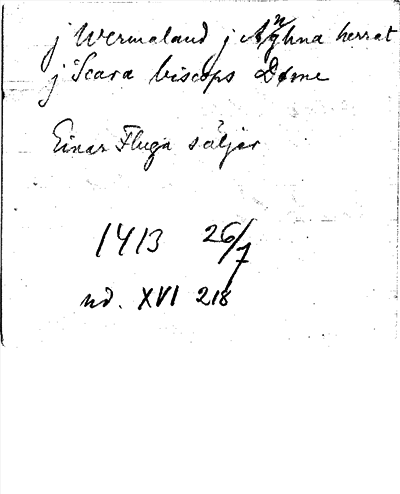 j Wermaland j Aghna herrat
j Scara biscops Døme
Einar Fluga säljer
1413 26/7
nd. XVI 218